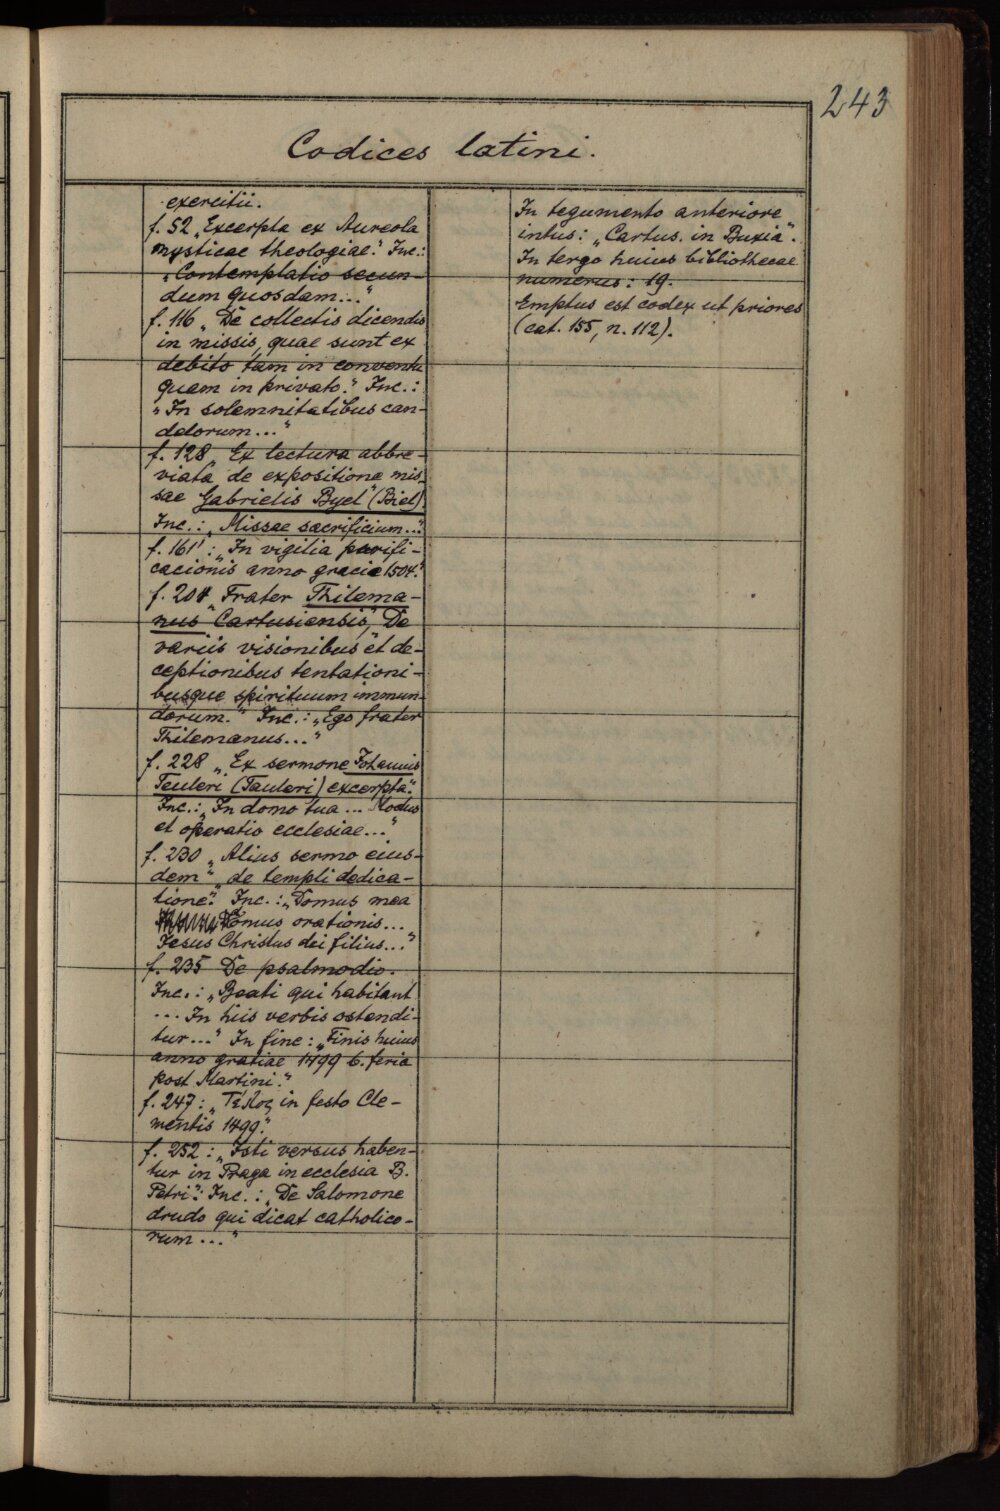 243
Codices latini.
exercitii.
f. 52 „Excerpta ex Aureola
mysticae theologiae." Inc.:
„Contemplatio secun-
dum quosdam..."
f. 116 „De collectis dicendis
in missis, quae sunt ex
debito tam in conventu
quam in privato." Inc.:
„In solemnitatibus can-
delorum..."
f. 128 „Ex lectura abbre-
viata de expositione mis-
sae Gabrielis Byel" (Biel).
Inc.: „Missae sacrificium..."
f. 161': „In vigilia purifi-
cacionis anno gracie 1504."
f. 204 „Frater Thilema-
nus Cartusiensis", „De
variis visionibus et de-
ceptionibus tentationi-
busque spirituum immun-
dorum." Inc.: „Ego frater
Thilemanus..."
f. 228 „Ex sermone Johannis
Teuleri (Tauleri) excerpta".
Inc.: „In domo tua ... Modus
et operatio ecclesiae..."
f. 230 „Alius sermo eius-
dem" „de templi dedica-
tione". Inc.: „Domus mea
Domus orationis...
Jesus Christus dei filius..."
f. 235 De psalmodio.
Inc.: „Beati qui habitant
... In hiis verbis ostendi-
tur..." In fine: „Finis huius
anno gratiae 1499 6. feria
post Martini."
f. 247: „Τέλος in festo Cle-
mentis 1499."
f. 252: „Isti versus haben-
tur in Praga in ecclesia B.
Petri": Inc.: „De Salomone
drudo qui dicat catholico-
rum..."
In tegumento anteriore
intus: „Cartus. in Buxia".
In tergo huius bibliothecae
numerus: 19.
Emptus est codex ut priores
(cat. 155, n. 112).